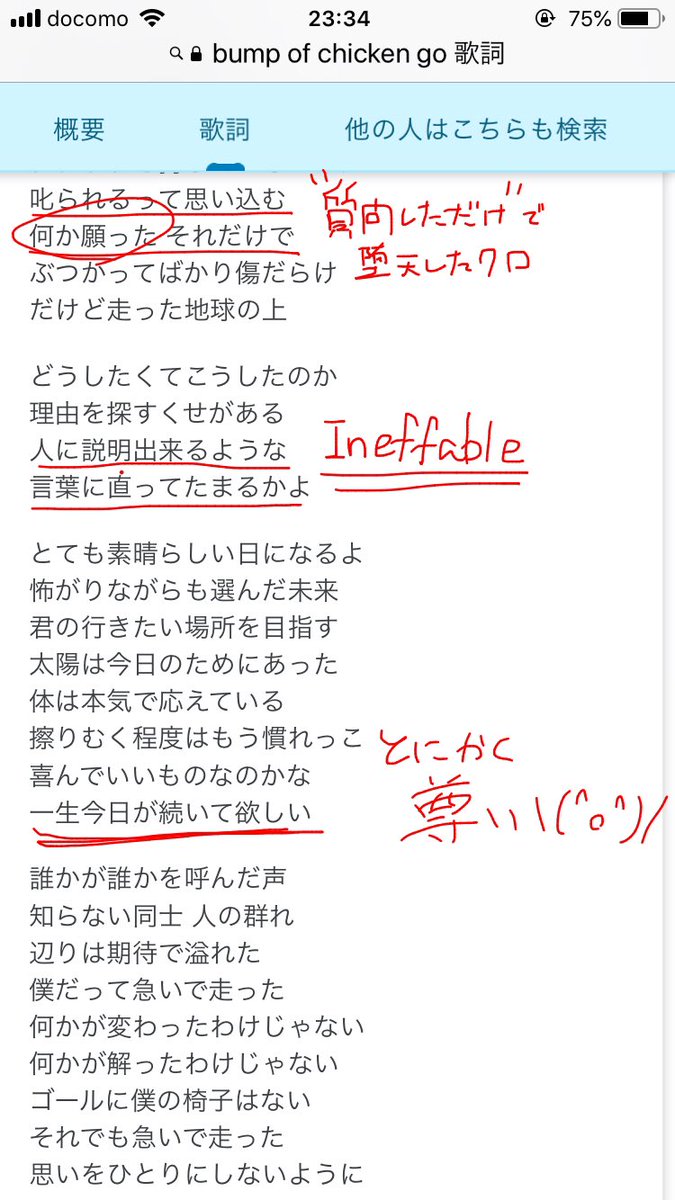 docomo 23:34 75%
bump of chicken go 歌詞
概要 歌詞 他の人はこちらも検索
叱られるって思い込む
何か願った それだけで
"質問しただけ"で
堕天したクロ
ぶつかってばかり傷だらけ
だけど走った地球の上
どうしたくてこうしたのか
理由を探すくせがある
人に説明出来るような
言葉に直ってたまるかよ
Ineffable
とても素晴らしい日になるよ
怖がりながらも選んだ未来
君の行きたい場所を目指す
太陽は今日のためにあった
体は本気で応えている
擦りむく程度はもう慣れっこ
喜んでいいものなのかな
一生今日が続いて欲しい
とにかく
尊い\(^o^)/
誰かが誰かを呼んだ声
知らない同士 人の群れ
辺りは期待で溢れた
僕だって急いで走った
何かが変わったわけじゃない
何かが解ったわけじゃない
ゴールに僕の椅子はない
それでも急いで走った
思いをひとりにしないように